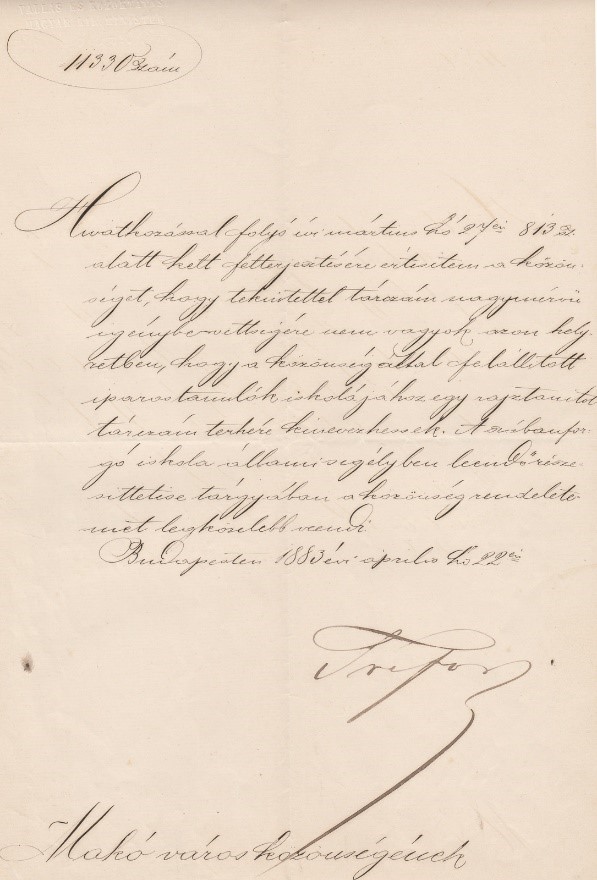 11330 szám
Hivatkozással folyó évi mártius hó 27én 813 sz.
alatt kelt felterjesztésére értesitem a közön-
séget, hogy tekintettel tárczám nagymérvü
igénybevettségére nem vagyok azon hely-
zetben, hogy a közönség által felállitott
iparostanulók iskolájához egy rajztanitót
tárczám terhére kinevezhessek. A szóbanfor-
gó iskola állami segélyben leendő része-
sittetése tárgyában a közönség rendelete-
met legközelebb veendi.
Budapesten 1883 évi április hó 22én
Trefor
Makó város közönségének